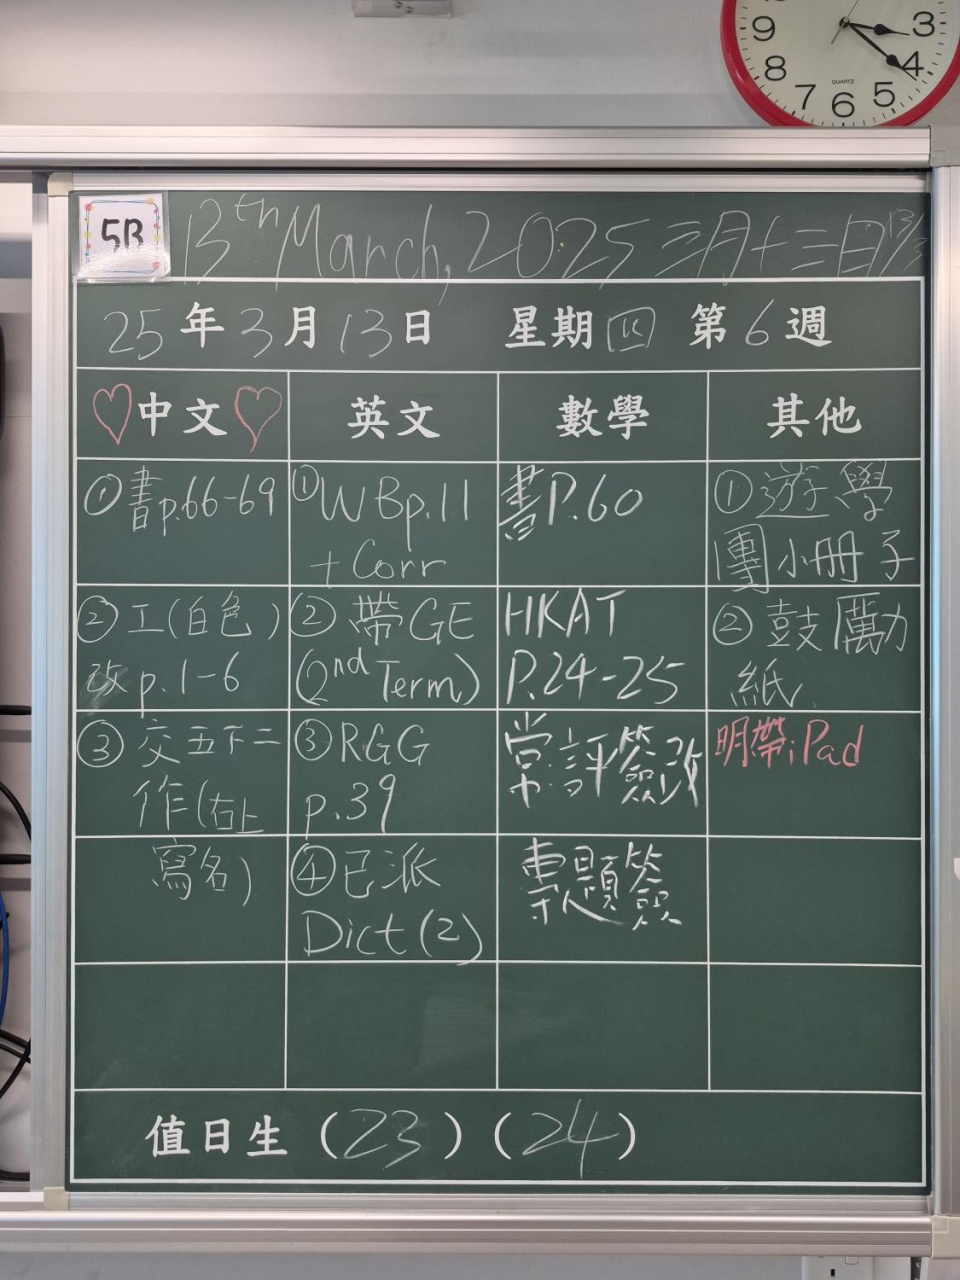 9
3
8
4
7
6
5
QUARTZ
5B
13th March, 2025 三月十三日 13/3
25年3月13日 星期四 第6週
中文
英文
數學
其他
①書p.66-69
①WBp.11
+Corr
書P.60
①遊學
團小冊子
②工(白色)
改p.1-6
②帶GE
(2nd Term)
HKAT
P.24-25
②鼓勵
紙
③交五下二
作(右上
寫名)
③RGG
p.39
常評簽改
明帶iPad
④已派
Dict(2)
專題簽
值日生(23)(24)